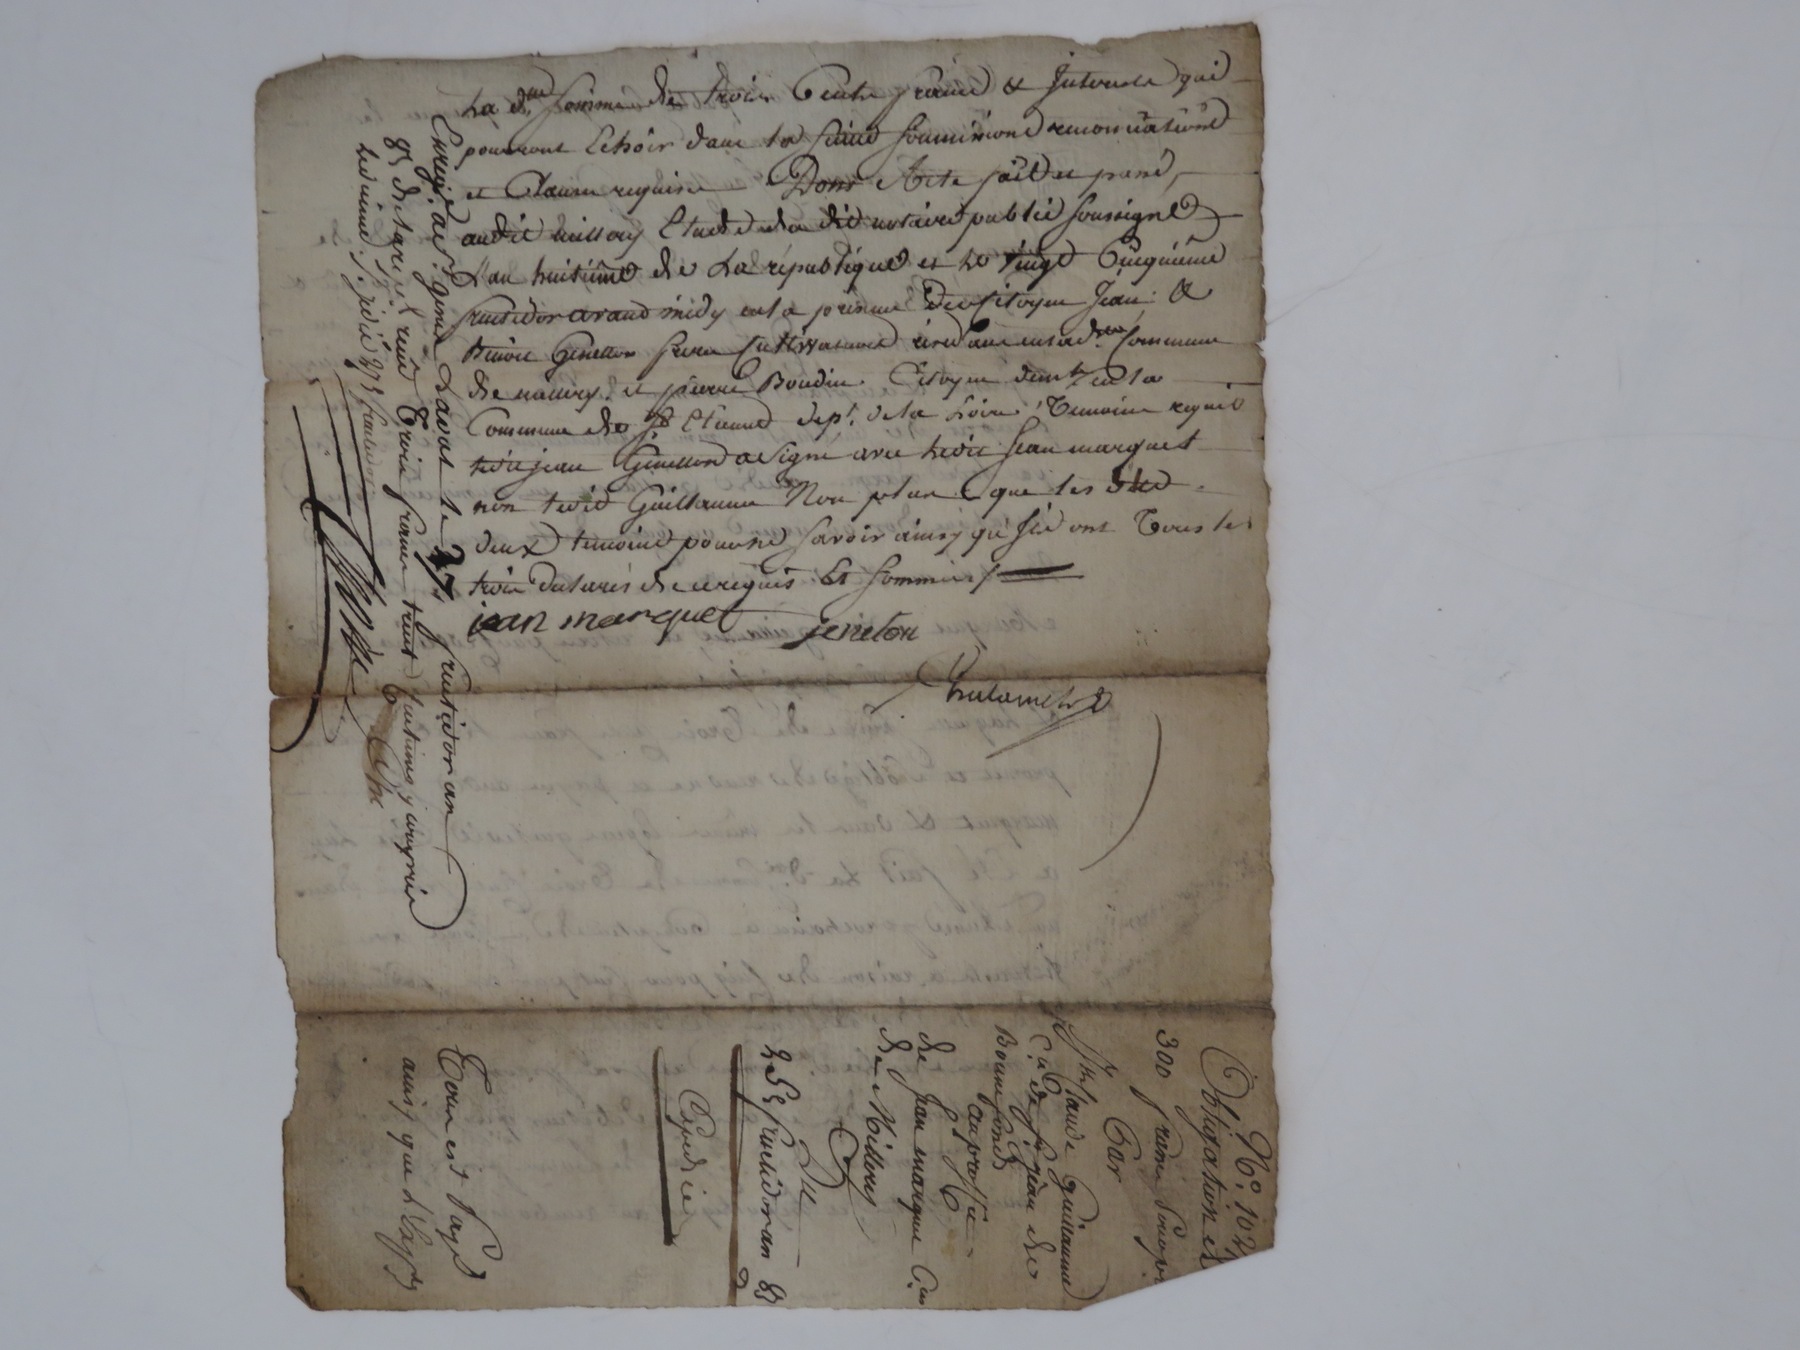 La d.te somme de trois Cents francs & Interets qui
pourront Echoir dans la suite soumissions renonciations
et Clauses requises Dont Acte fait et passé,
audit Millery Etude du dit notaire public soussigné
L'an huitieme de La république et le vingt Cinquieme
fructidor avant midy en la presence des Citoyens Jean &
Genetton frere Cultivateurs en lad.te Commune
de et pierre Boudin Citoyen dem.t en la
Commune de S.t Etienne dep.t de la Loire, Temoins requis
ledit jean Genetton a signé avec ledit Jean marquet
non ledit Guillaume Non plus que les dits
deux temoins pour ne savoir ainsy qu'ils ont Tous les
trois declarés de ce requis Et sommés /
jean marquet geneton
Enregis. a S.t genis Laval le 27 fructidor an
8 reçu Trois francs trente Centimes y compris
le dixieme
N.o 102
Obligation de
300 francs
Par
Claude Guillaume
C.en de S.t Jean de
Bonnefonds
au proffit
de Jean marquet C.en
de Millery
Du
25 fructidor an 8
Expedié
Tout est Payé
ainsy que L'Exp.on